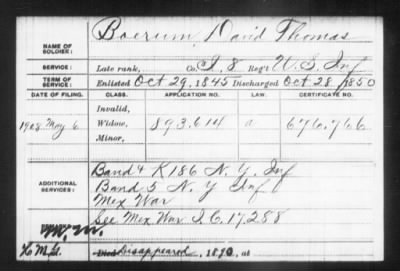 NAME OF SOLDIER: Boerum, David Thomas
SERVICE: Late rank, Co. I, 8 Reg't U.S. Inf
TERM OF SERVICE: Enlisted Oct 29, 1845 Discharged Oct 28, 1850
DATE OF FILING. CLASS. APPLICATION NO. LAW. CERTIFICATE NO.
Invalid,
1908 May 6 Widow, 893.614 a 676.766
Minor,
ADDITIONAL SERVICES: Band & K 186 N.Y. Inf
Band 5 N.Y Inf
Mex War
See Mex War S.C. 17,288
W.W.M.
Died Disappeared, 1890, at